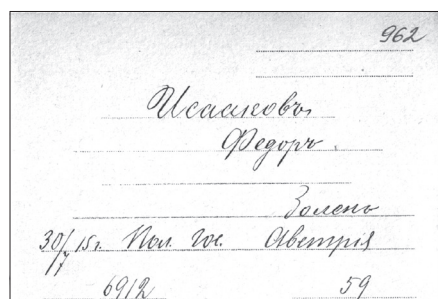 962
Исааковъ
Федоръ
Боленъ
30/7 15 г. Австрія
6912 59